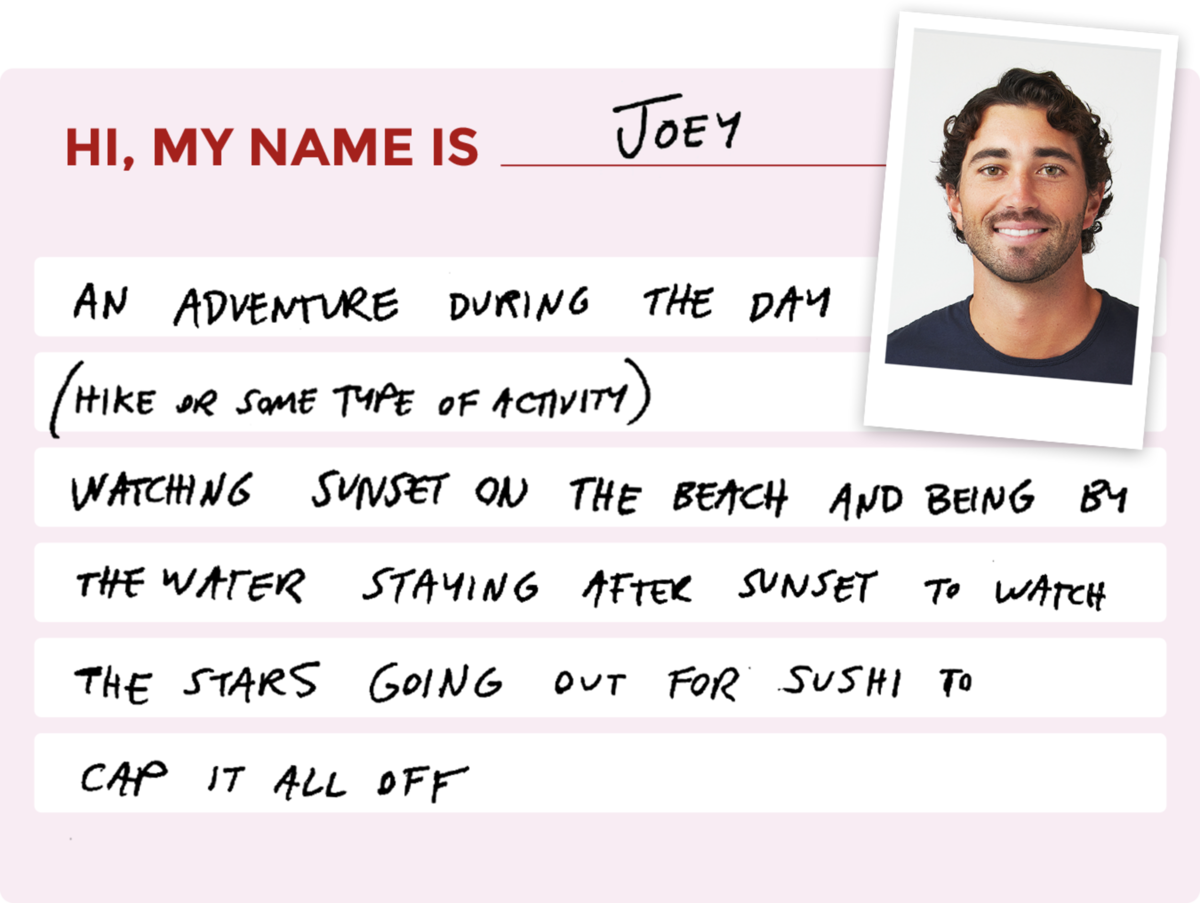 HI, MY NAME IS JOEY
AN ADVENTURE DURING THE DAY
(HIKE OR SOME TYPE OF ACTIVITY)
WATCHING SUNSET ON THE BEACH AND BEING BY
THE WATER STAYING AFTER SUNSET TO WATCH
THE STARS GOING OUT FOR SUSHI TO
CAP IT ALL OFF